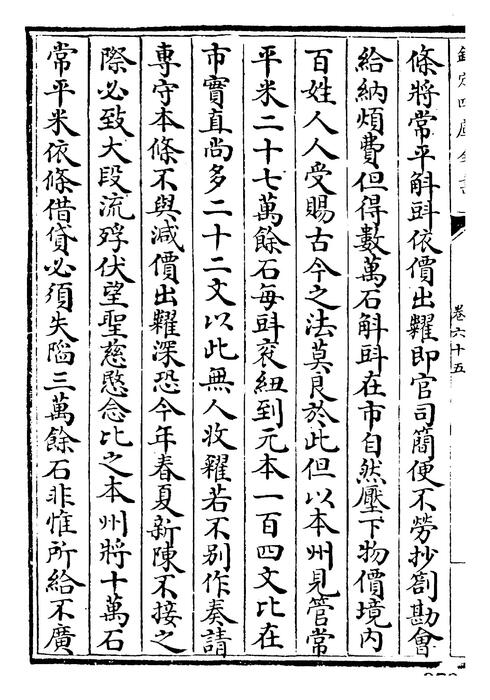 欽定四庫全書
卷六十五
條將常平斛㪷依價出糶即官司簡便不勞抄劄勘會
給納煩費但得數萬石斛㪷在市自然壓下物價境內
百姓人人受賜古今之法莫良於此但以本州見管常
平米二十七萬餘石每㪷衮紐到元本一百四文比在
市實直尚多二十二文以此無人收糴若不別作奏請
專守本條不與減價出糶深恐今年春夏新陳不接之
際必致大段流殍伏望聖慈愍念比之本州將十萬石
常平米依條借貸必須失陷三萬餘石非惟所給不廣